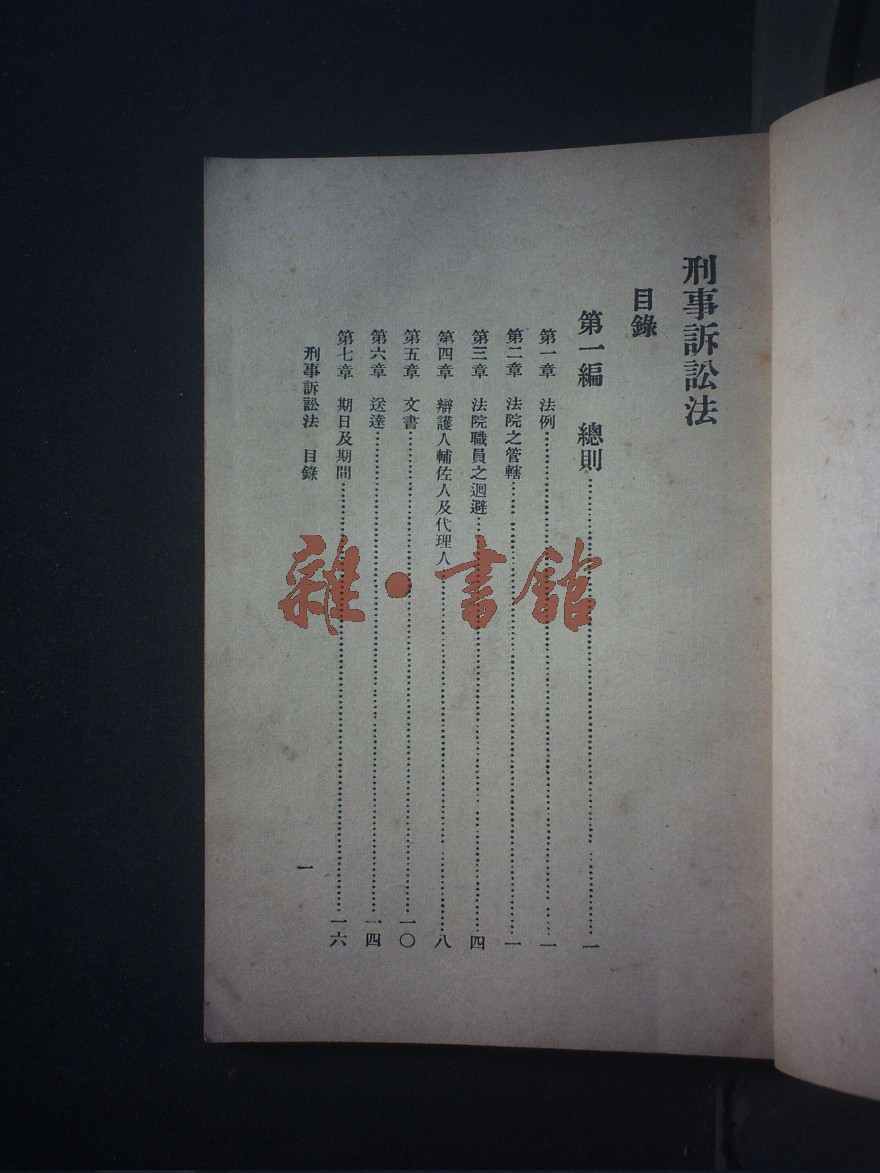 刑事訴訟法
目錄
第一編　總則……一
第一章　法例……一
第二章　法院之管轄……一
第三章　法院職員之迴避……四
第四章　辯護人輔佐人及代理人……八
第五章　文書……一〇
第六章　送達……一四
第七章　期日及期間……一六
刑事訴訟法　目錄
一
雜・書館